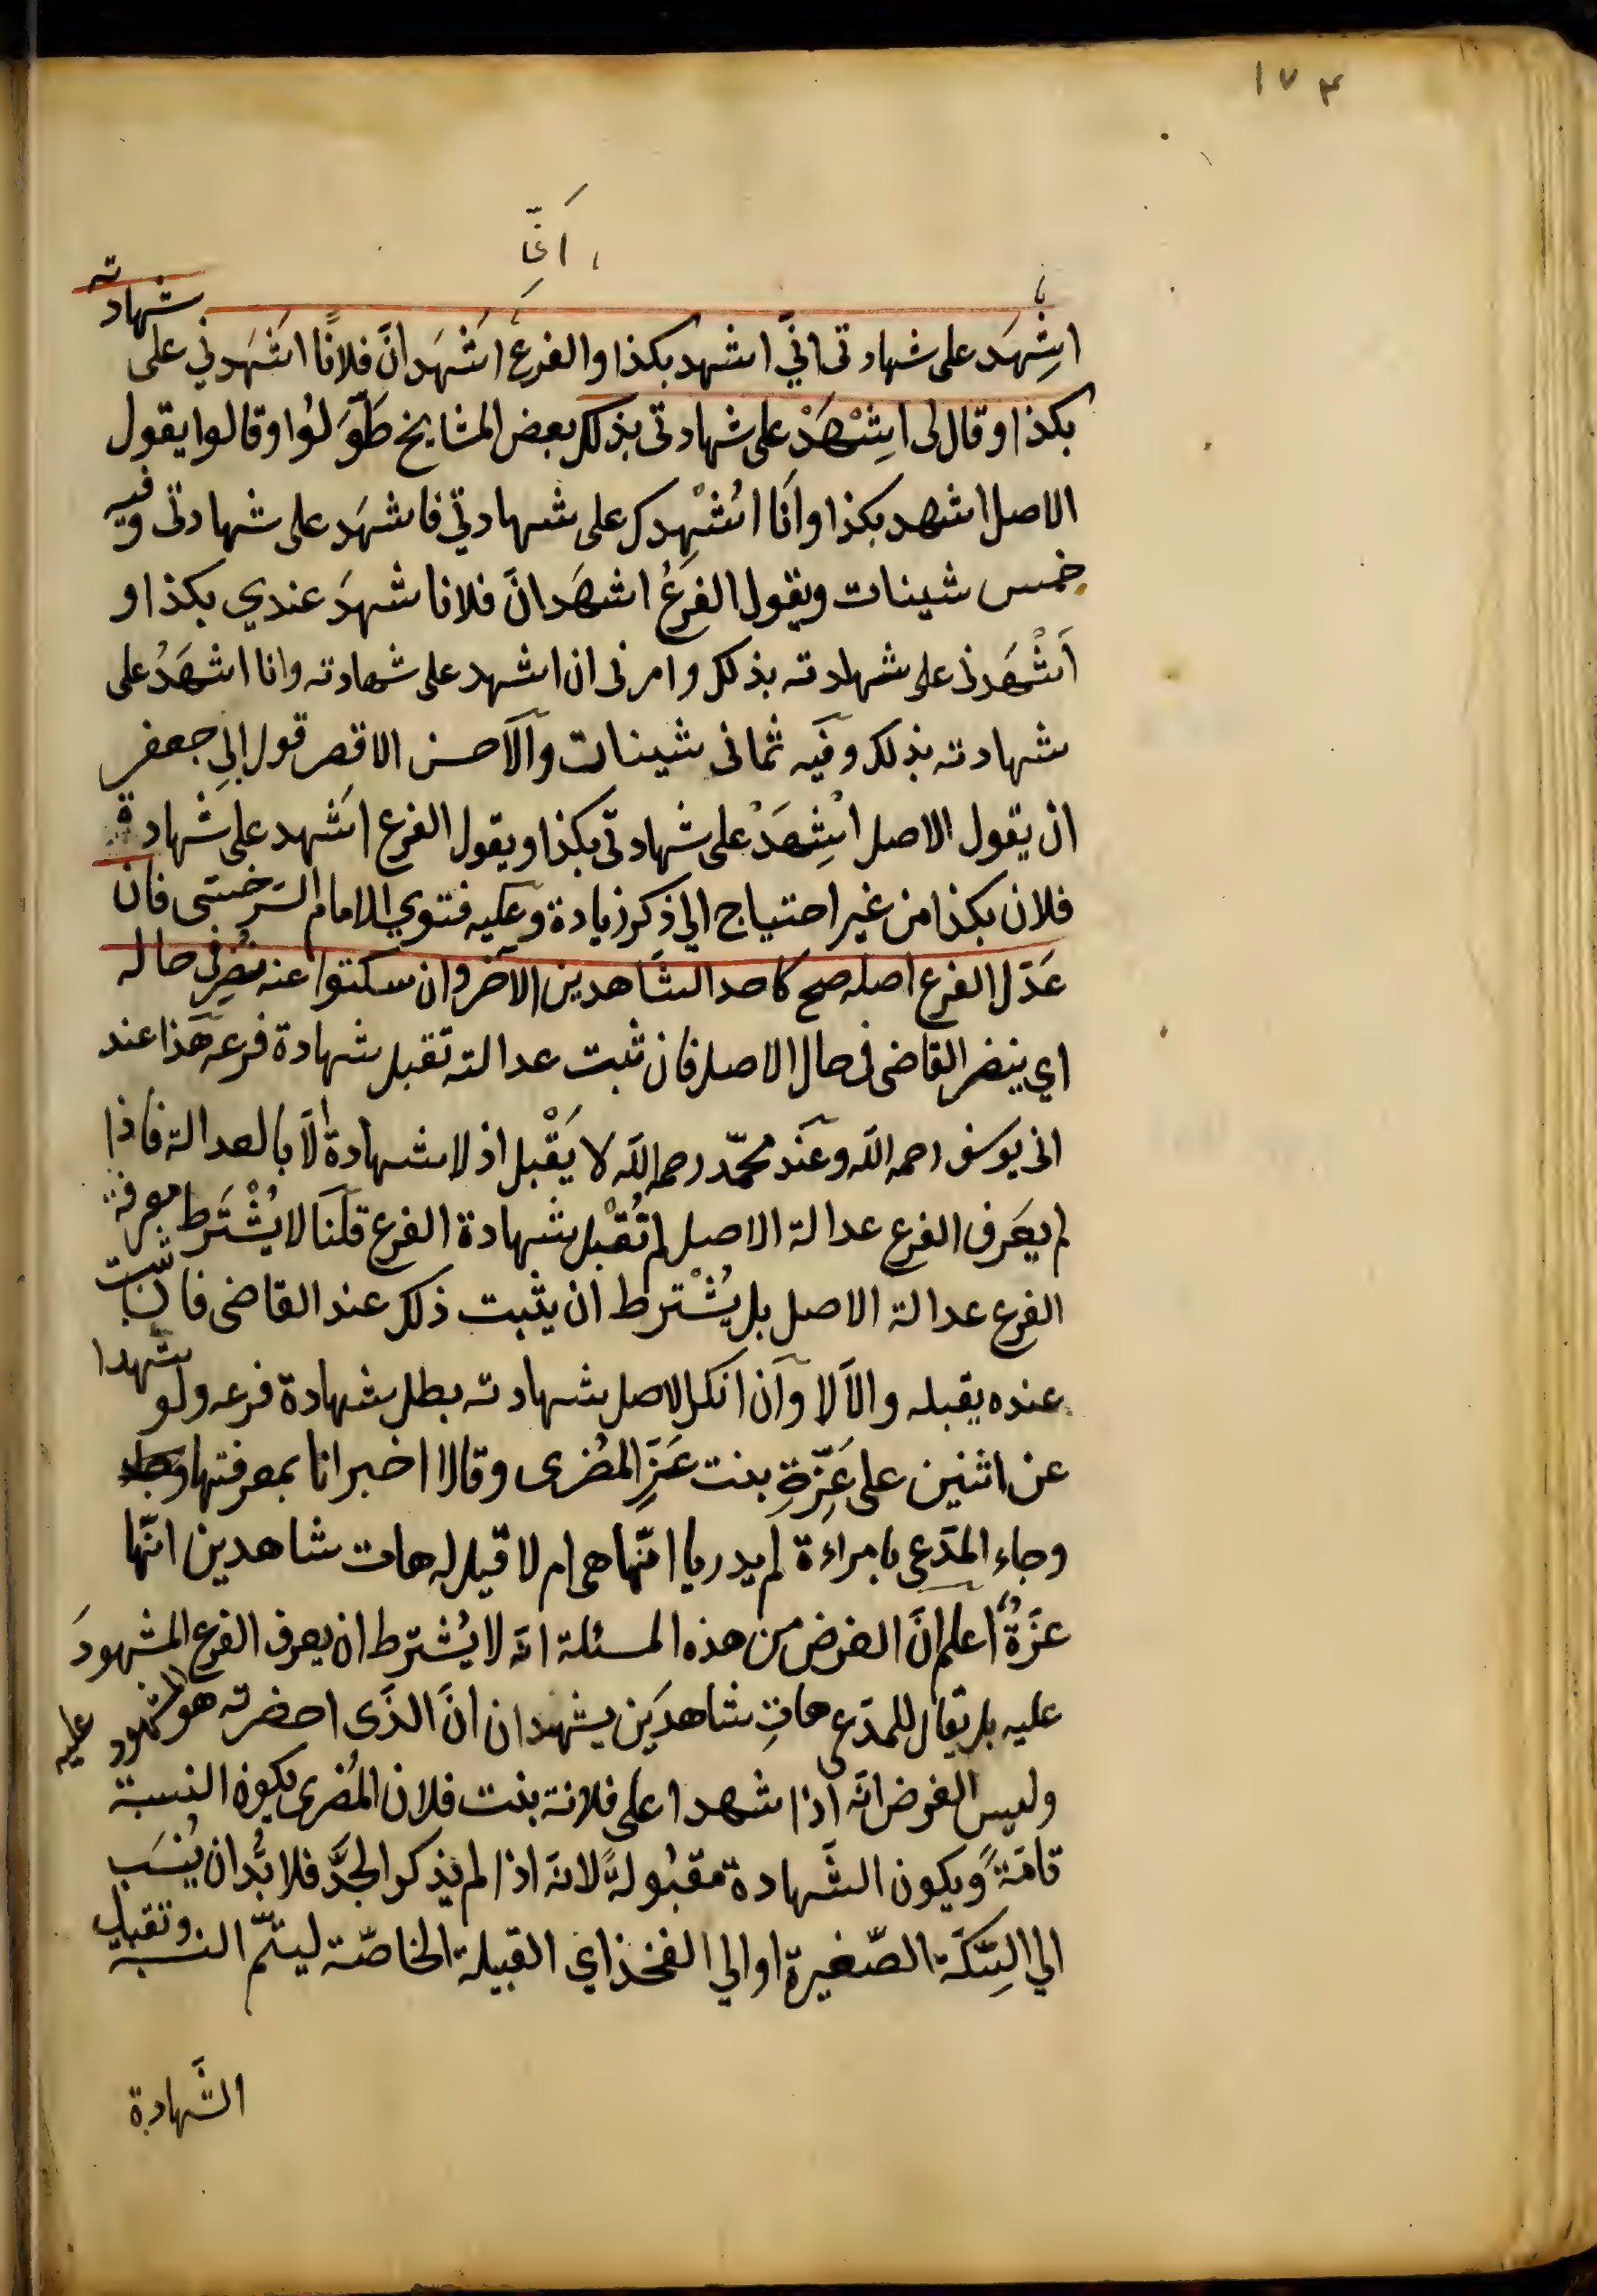 ١٧٤
انّی
اشهَد على شهادتى انّي اشهد بكذا والفرعُ اَشْهَد انّ فلانًا اشهَدني على شهادته
بكذا وقال لى اِشْهَدْ على شهادتى بذلك بعض المشايخ طَوَّلُوا وقالوا يقول
الاصل اشهد بكذا وانَا اُشْهِدك على شهادتي فاشهَد على شهادتى وفيه
خمس شينات ويقول الفرعُ اشهَد انّ فلانا شهدَ عندي بكذا و
اَشْهَدنى على شهادته بذلك وامرنى ان اشهد على شهادته وانا اشهَدُ على
شهادته بذلك وفيه ثمانى شينات والآحسن الاقصر قول ابي جعفر
ان يقول الاصل اشِهَدْ على شهادتى بكذا ويقول الفرع اَشهد على شهادة
فلان بكذا من غير احتياج الي ذكر زيادة وعليه فتوي الامام السَرخسى فان
عَدّل الفرع اصله صح كاحد الشاهدين الآخر وان سكتوا عنه نُضِر فى حاله
اي ينضر القاضى فى حال الاصل فان ثبت عدالته تقبل شهادة فرعه هذا عند
ابى يوسف رحمه الله وعند محمّد رحمه الله لا يَقْبل اذ لا شهادة الّا بالعدالة فاذا
لم يعَرف الفرع عدالة الاصل لم تُقْبل شهادة الفرع قلنا لا يُشْتَرط معرفة
الفرع عدالة الاصل بل يُشْترط ان يثبت ذلك عند القاضى فان ثبت
عنده يقبله والّا لا وان انكر الاصل شهادته بطل شهادة فرعه ولو شهدا
عن اثنين على عَزّةِ بنت عَزِّ المُضرى وقالا اخبرانا بمعرفتها
وجاء المدّعى بامراءة لم يدريا انّها هى ام لا قيل له هات شاهدين انّها
عزّةُ اعلم انّ الغرض من هذه المسئلة انّه لا يُشترط ان يعرف الفرع المشهودَ
عليه بل يقال للمدّعى هاتِ شاهدَين يشهدان انّ الذّى احضرته هو المشهود عليه
وليس الغرض انّه اذا شهدا على فلانة بنت فلان المُضرى يكون النسبة
تامّةً ويكون الشّهادة مقبُولةً لانّه اذا لم يذكر الجدَّ فلا بُدّ ان يُنسَب
الي السِّكّة الصّغيرة او الي الفخذ اي القبيلة الخاصّة ليتمّ النسبة وتقبل
الشّهادة